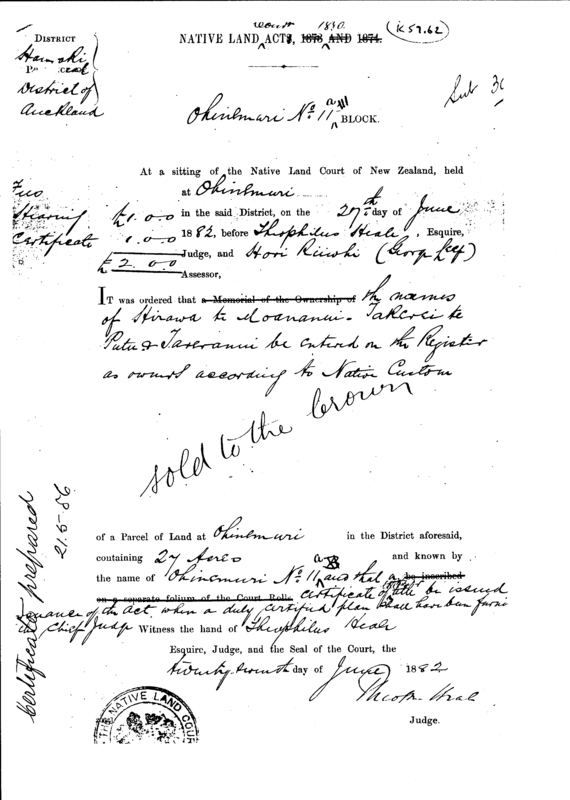 Court 1880.
NATIVE LAND ACTS, 1873 AND 1874.
K 57.62
DISTRICT
Hauraki
District of
Auckland
Sub
Ohinemuri No. 11a
BLOCK.
At a sitting of the Native Land Court of New Zealand, held
at Ohinemuri
Hearing £1.0.0 in the said District, on the 27th day of June
Certificate 1.0.0 1882, before Theophilus Heale, Esquire,
£2.0.0 Judge, and Hori
Assessor,
IT was ordered that a Memorial of the Ownership of the names
of Hirawa te Moananui. Takerei te
Putu & Taveranui be entered on the Register
as owners according to Native Custom
sold to the Crown
of a Parcel of Land at Ohinemuri in the District aforesaid,
containing 27 Acres and known by
the name of Ohinemuri No. 11a and that a be inscribed
on a separate folium of the Court Rolls certificate of title be issued
of the Act when a duly certified plan shall have been
the Chief Judge Witness the hand of Theophilus Heale
Esquire, Judge, and the Seal of the Court, the
twenty seventh day of June 1882
Theoph. Heale
Judge.
Certificate prepared
21.5.86
THE NATIVE LAND COUR